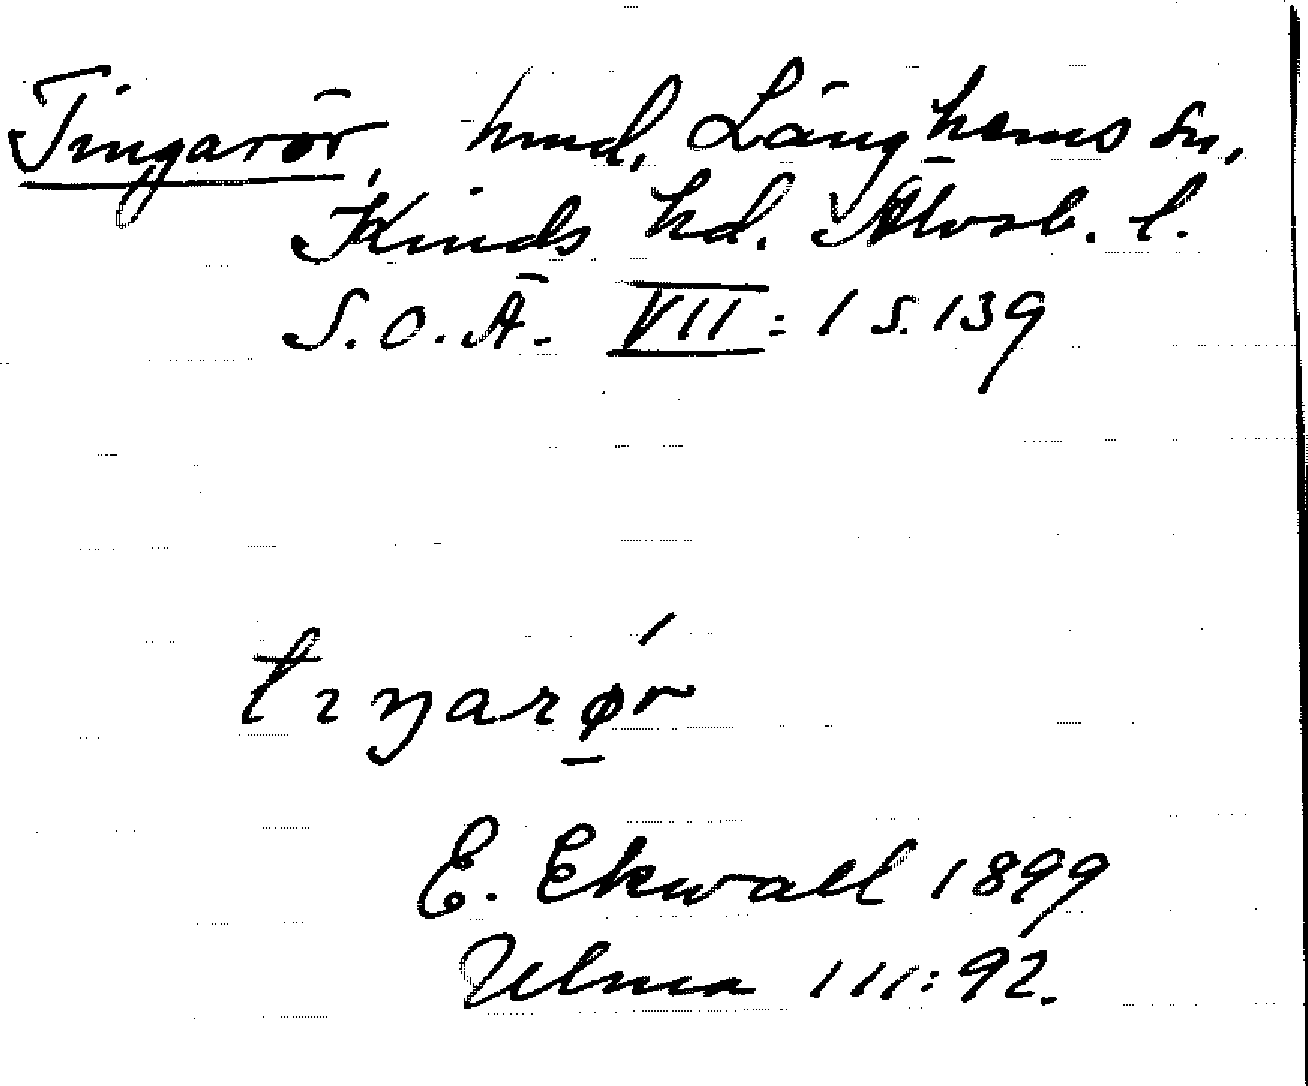 Tingarör, hmd, Länghems sn,
Kinds hd. Älvsb. l.
S.O.Ä. VII: 1 s. 139
tıŋarǿr
E. Ekwall 1899
Ulma 111:92.